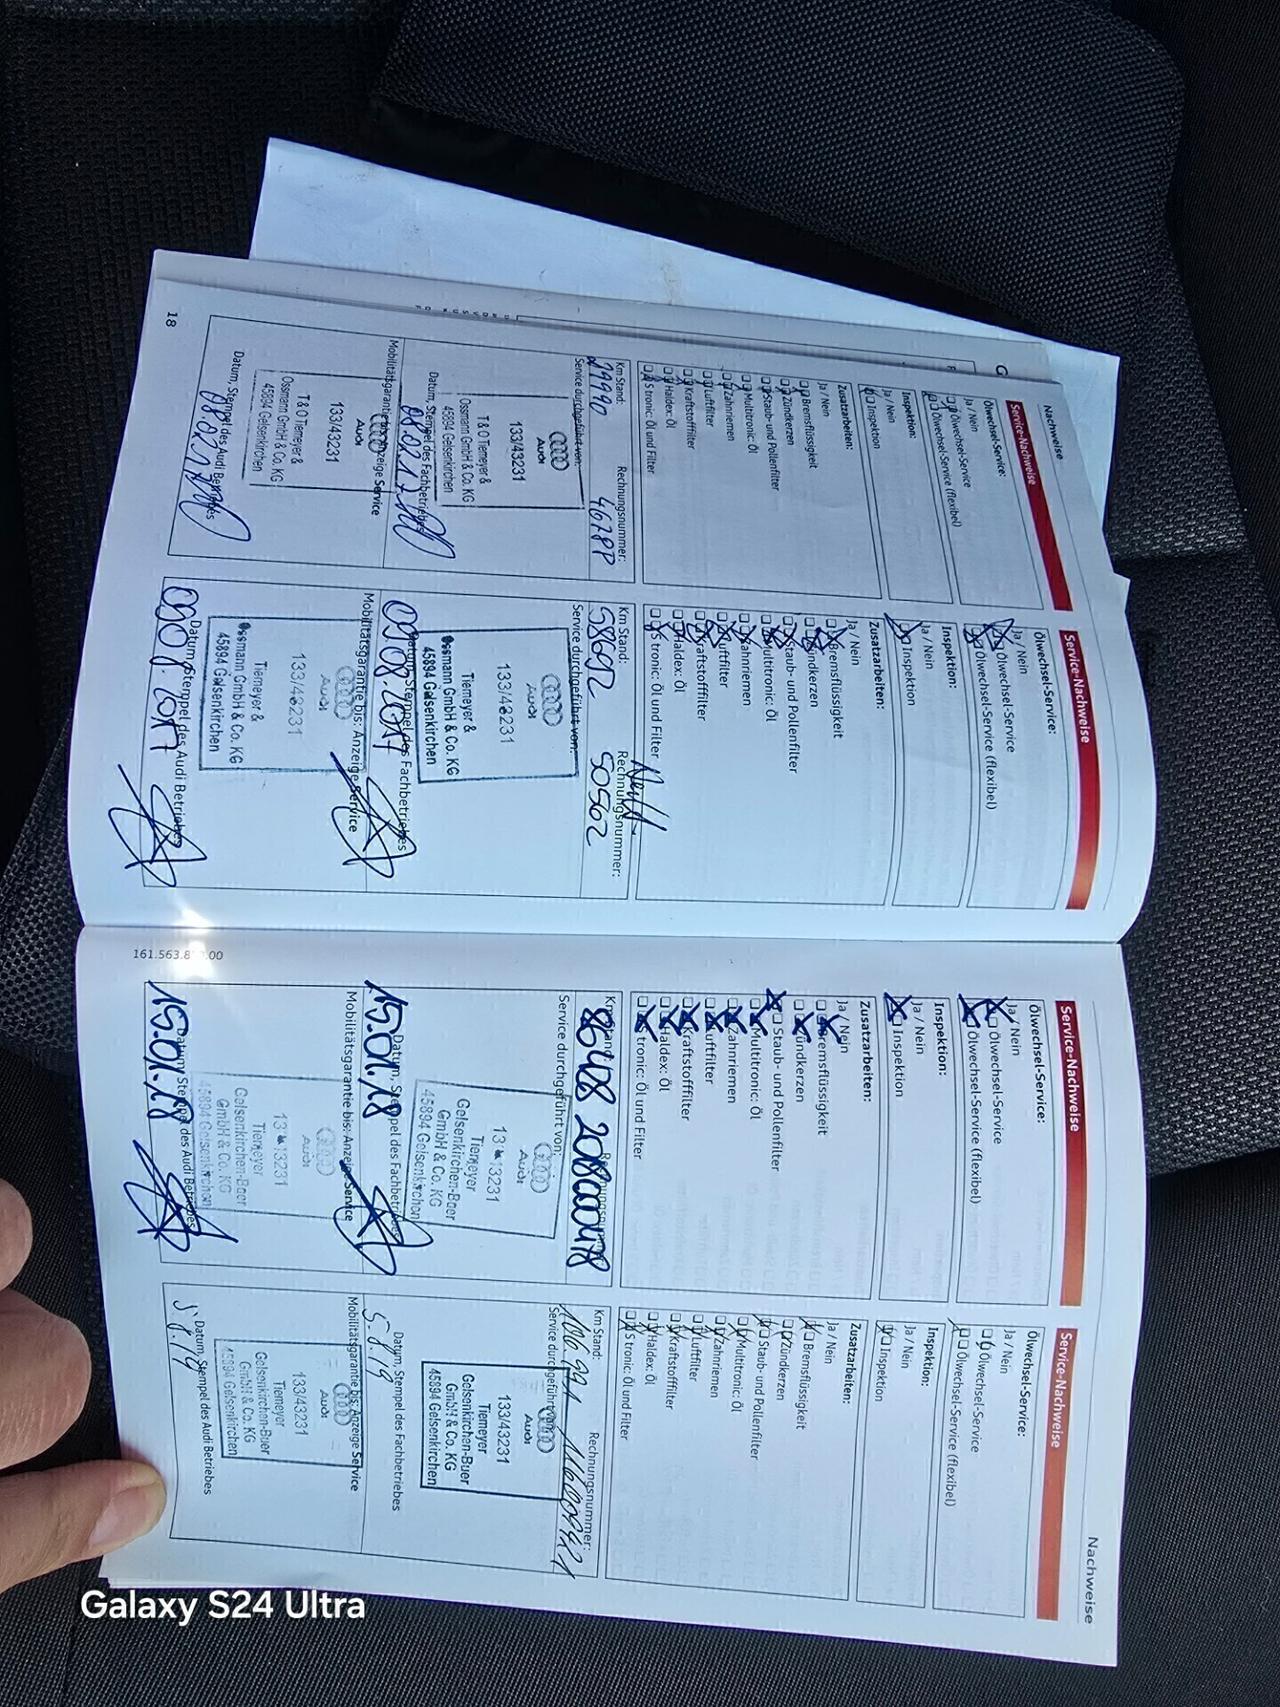 Nachweise
Service-Nachweise
Ölwechsel-Service:
Ja / Nein
Ölwechsel-Service
Ölwechsel-Service (flexibel)
Inspektion:
Ja / Nein
Inspektion
Zusatzarbeiten:
Ja / Nein
Bremsflüssigkeit
Zündkerzen
Staub-und Pollenfilter
Multitronic: Öl
Zahnriemen
Luftfilter
Kraftstofffilter
Haldex: Öl
S tronic: Öl und Filter
Km Stand: Rechnungsnummer:
29990
Service durchgeführt von:
Audi
133/43231
T&O Tiemeyer &
Ossmann GmbH & Co. KG
45894 Gelsenkirchen
Datum, Stempel des Fachbetriebes
Mobilitätsgarantie bis: Anzeige Service
Audi
133/43231
T&O Tiemeyer &
Ossmann GmbH & Co. KG
45894 Gelsenkirchen
Datum, Stempel des Audi Betriebes
18
Service-Nachweise
Ölwechsel-Service:
Ja / Nein
Ölwechsel-Service
Ölwechsel-Service (flexibel)
Inspektion:
Ja / Nein
Inspektion
Zusatzarbeiten:
Ja / Nein
Bremsflüssigkeit
Zündkerzen
Staub- und Pollenfilter
Multitronic: Öl
Zahnriemen
Luftfilter
Kraftstofffilter
Haldex: Öl
S tronic: Öl und Filter
Km Stand: Rechnungsnummer:
58692 50562
Service durchgeführt von:
Audi
133/43231
Tiemeyer &
Ossmann GmbH & Co. KG
45894 Gelsenkirchen
Datum, Stempel des Fachbetriebes
Mobilitätsgarantie bis: Anzeige Service
Audi
133/43231
Tiemeyer &
Ossmann GmbH & Co. KG
45894 Gelsenkirchen
Datum, Stempel des Audi Betriebes
161.563.8
.00
Service-Nachweise
Ölwechsel-Service:
Ja / Nein
Ölwechsel-Service
Ölwechsel-Service (flexibel)
Inspektion:
Ja / Nein
Inspektion
Zusatzarbeiten:
Ja / Nein
Bremsflüssigkeit
Zündkerzen
Staub- und Pollenfilter
Multitronic: Öl
Zahnriemen
Luftfilter
Kraftstofffilter
Haldex: Öl
S tronic: Öl und Filter
Km Stand: Rechnungsnummer:
Service durchgeführt von:
Audi
13 13231
Tiemeyer
Gelsenkirchen-Buer
GmbH & Co. KG
45894 Gelsenkirchen
15.01.18
Datum, Stempel des Fachbetriebes
Mobilitätsgarantie bis: Anzeige Service
Audi
13 13231
Tiemeyer
Gelsenkirchen-Buer
GmbH & Co. KG
45894 Gelsenkirchen
15.01.18
Datum, Stempel des Audi Betriebes
Nachweise
Service-Nachweise
Ölwechsel-Service:
Ja / Nein
Ölwechsel-Service
Ölwechsel-Service (flexibel)
Inspektion:
Ja / Nein
Inspektion
Zusatzarbeiten:
Ja / Nein
Bremsflüssigkeit
Zündkerzen
Staub- und Pollenfilter
Multitronic: Öl
Zahnriemen
Luftfilter
Kraftstofffilter
Haldex: Öl
S tronic: Öl und Filter
Km Stand: Rechnungsnummer:
106.991
Service durchgeführt von:
Audi
133/43231
Tiemeyer
Gelsenkirchen-Buer
GmbH & Co. KG
45894 Gelsenkirchen
5.8.19
Datum, Stempel des Fachbetriebes
Mobilitätsgarantie bis: Anzeige Service
Audi
133/43231
Tiemeyer
Gelsenkirchen-Buer
GmbH & Co. KG
45894 Gelsenkirchen
5.8.19
Datum, Stempel des Audi Betriebes
Galaxy S24 Ultra